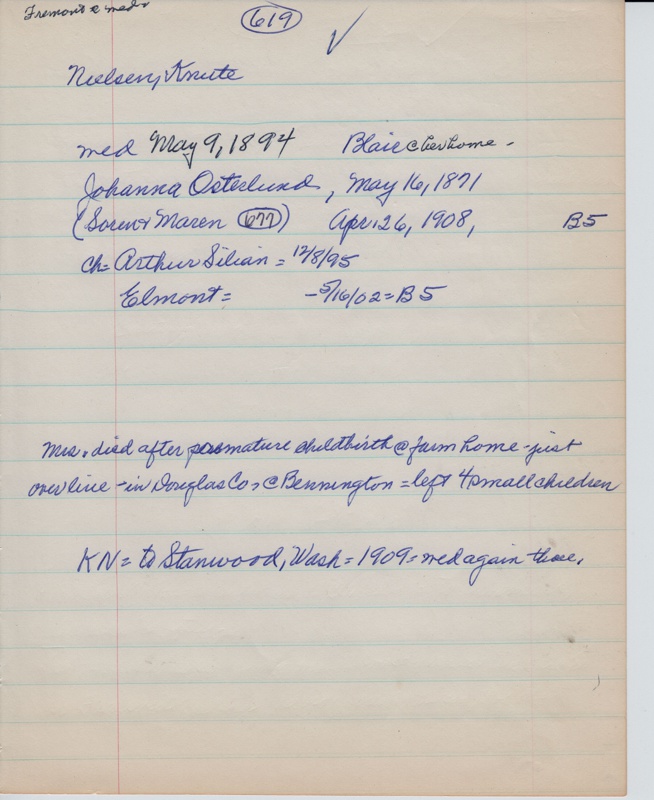 Fremont &
619
Nielsen, Knute
med May 9, 1894 Blair @ her home -
Johanna Osterlund, May 16, 1871
(Soren & Maren 677) Apr. 26, 1908, B5
ch= Arthur Silian = 12/8/95
Elmont= -5/16/02 = B5
Mrs. died after premature childbirth @ farm home - just
over line - in Douglas Co, @ Bennington = left 4 small children
KN = to Stanwood, Wash = 1909 = med again there.